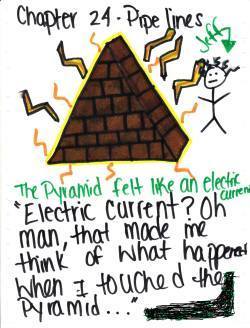 Chapter 24 - Pipe lines
Jeff
The Pyramid felt like an electric
current
"Electric current? Oh
man, that made me
think of what happened
when I touched the
Pyramid..."